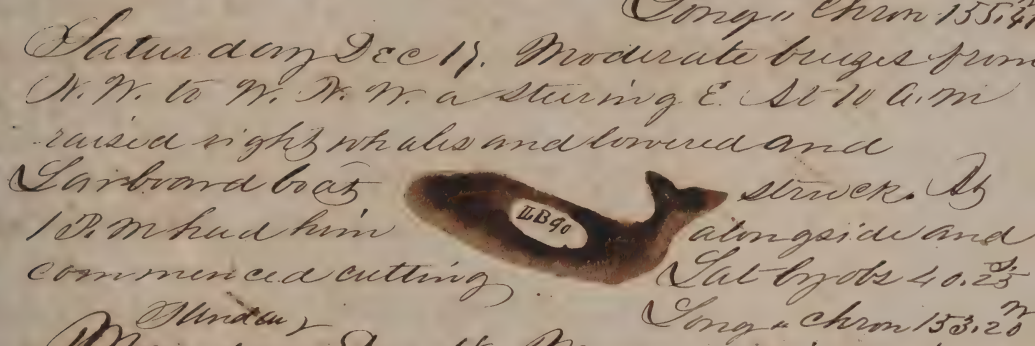 Long " Chron 155.41
Saturday Dec 17. Moderate breezes from
N.W. to W.N.W. a steering E. At 10 A.M
raised right whales and lowered and
Larboard boat struck. At
LB 90
1 P.M had him alongside and
commenced cutting Lat by obs 40.25 S.
Long " Chron 153.20 W
Sunday